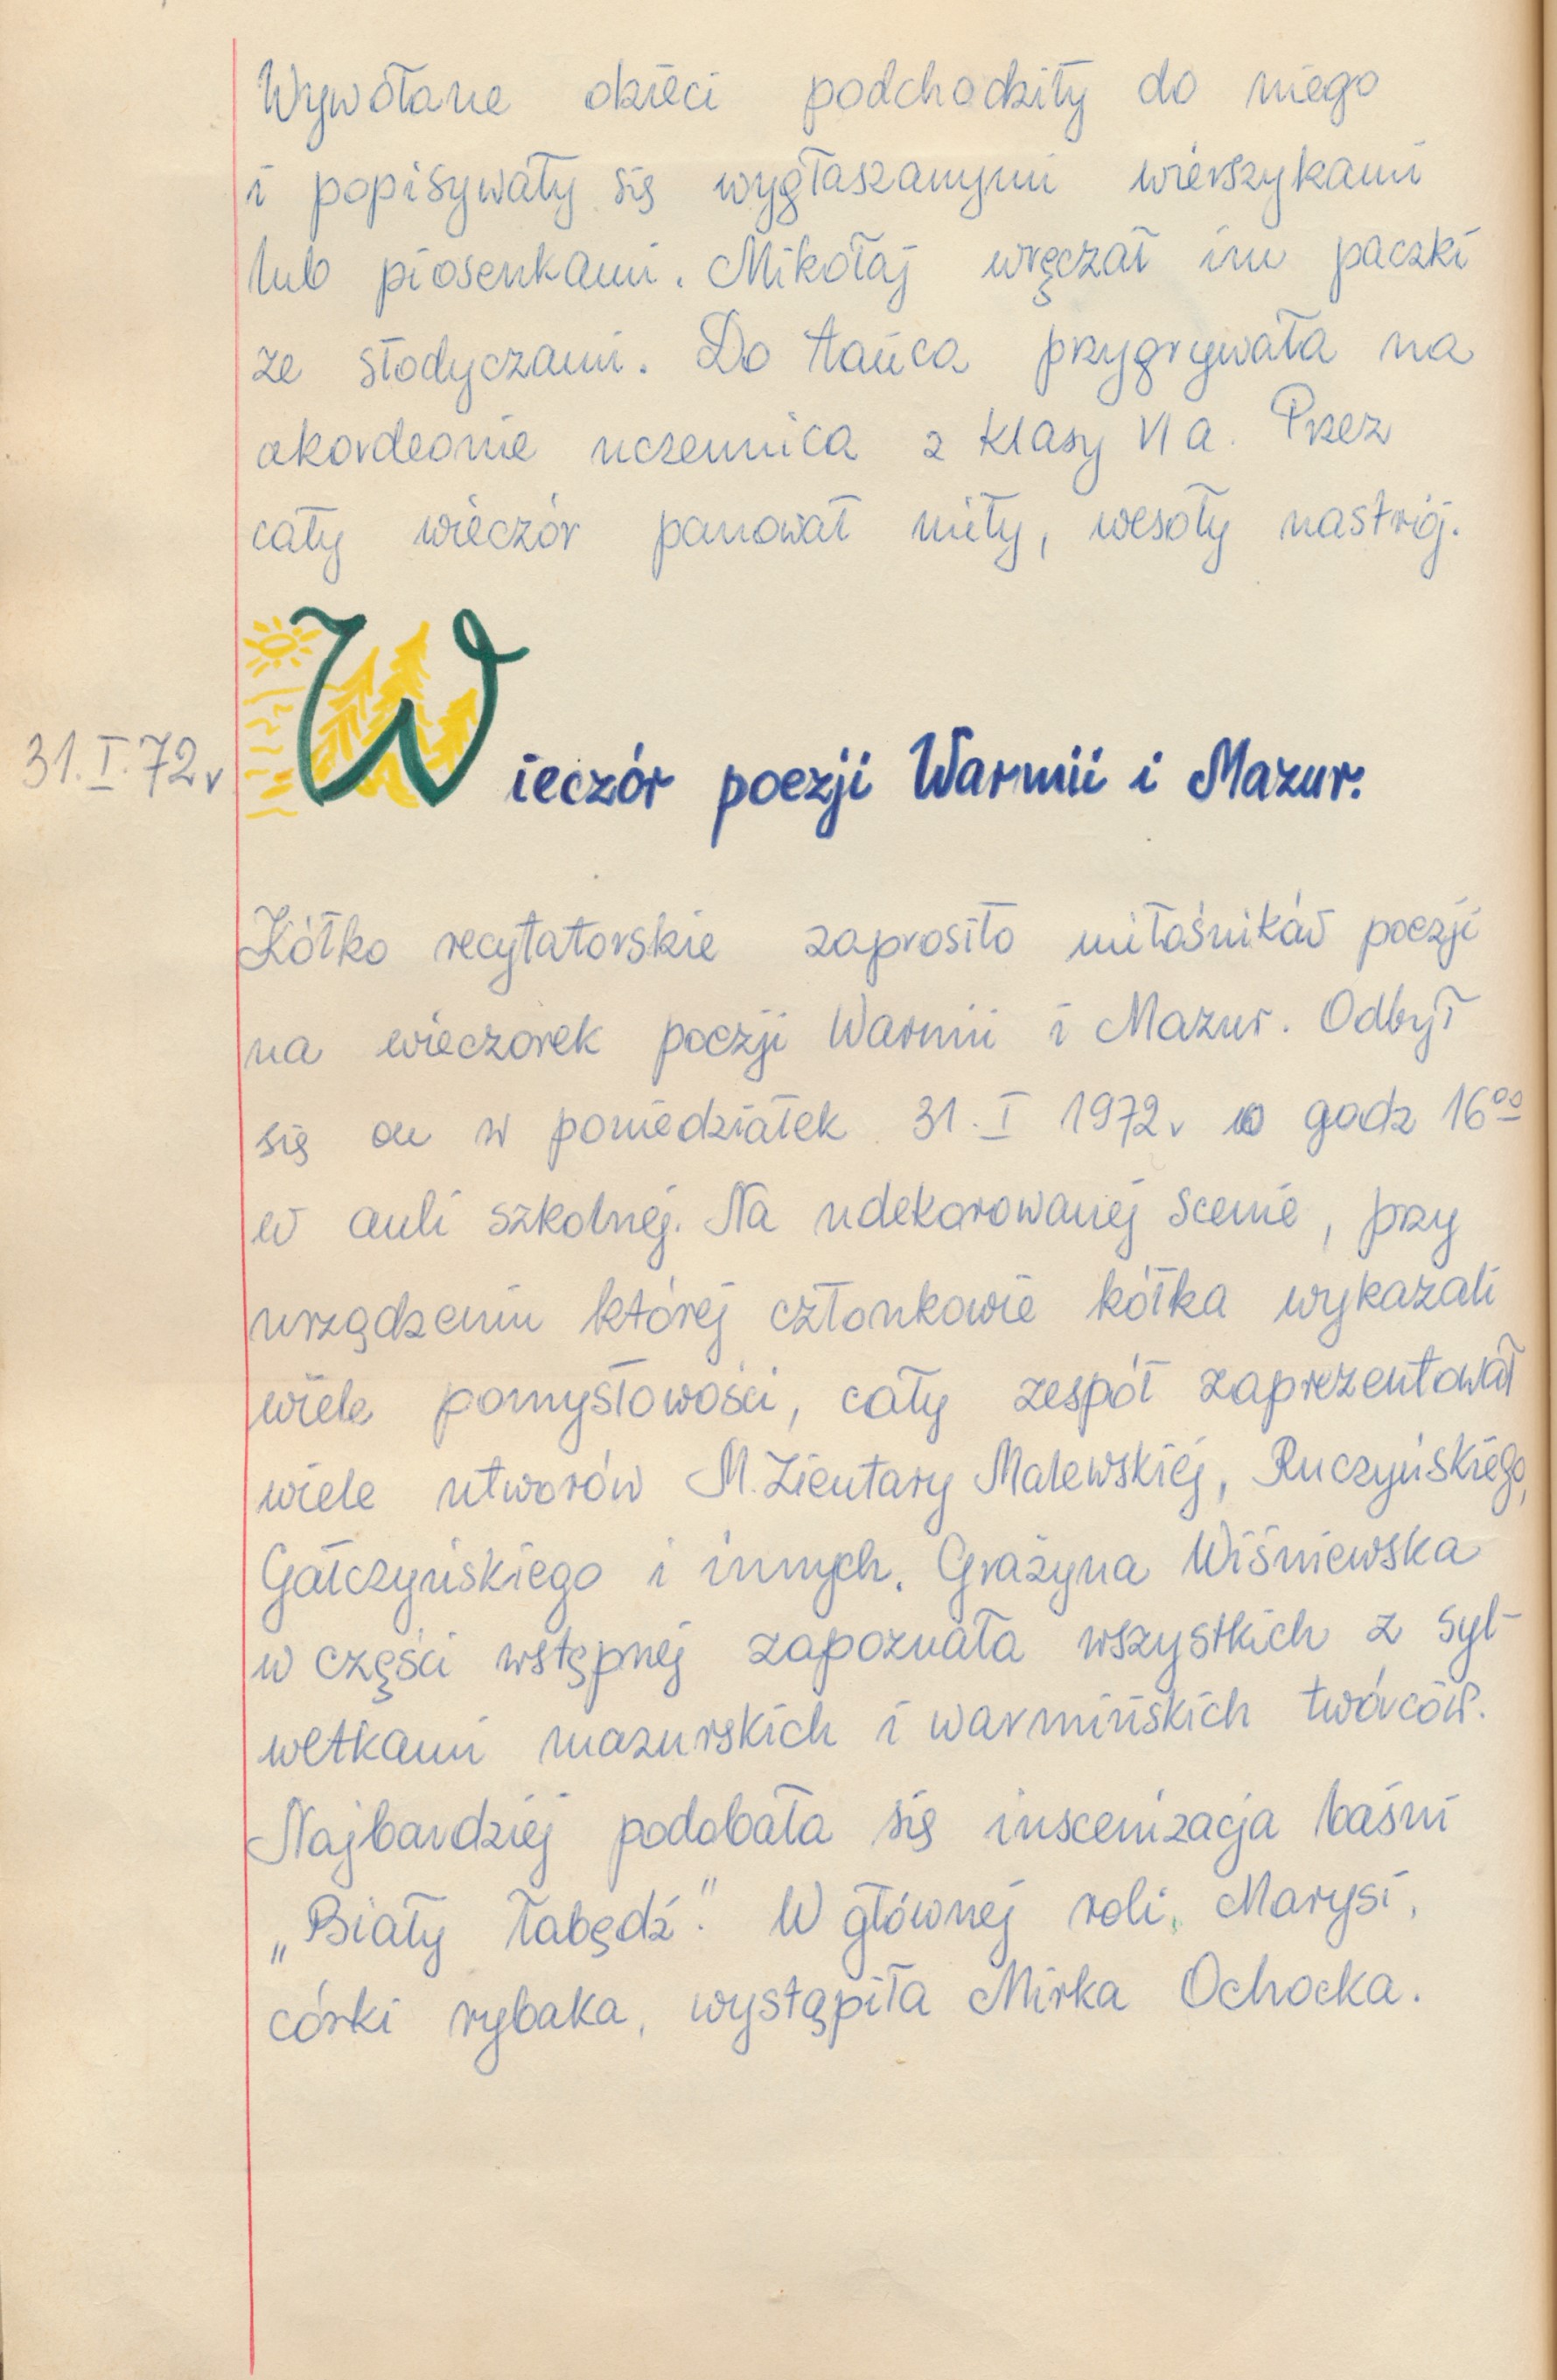 Wywołane dzieci podchodziły do niego
i popisywały się wygłaszanymi wierszykami
lub piosenkami. Mikołaj wręczał im paczki
ze słodyczami. Do tańca przygrywała na
akordeonie uczennica z klasy VI a. Przez
cały wieczór panował miły, wesoły nastrój.
31.I.72r
Wieczór poezji Warmii i Mazur.
Kółko recytatorskie zaprosiło miłośników poezji
na wieczorek poezji Warmii i Mazur. Odbył
się on w poniedziałek 31. I 1972r o godz 16⁰⁰
w auli szkolnej. Na udekorowanej scenie, przy
urządzeniu której członkowie kółka wykazali
wiele pomysłowości, cały zespół zaprezentował
wiele utworów M. Zientary Malewskiej, Ruczyńskiego,
Gałczyńskiego i innych. Grażyna Wiśniewska
w części wstępnej zapoznała wszystkich z syl-
wetkami mazurskich i warmińskich twórców.
Najbardziej podobała się inscenizacja baśni
„Biały łabędź". W głównej roli, Marysi,
córki rybaka, wystąpiła Mirka Ochocka.